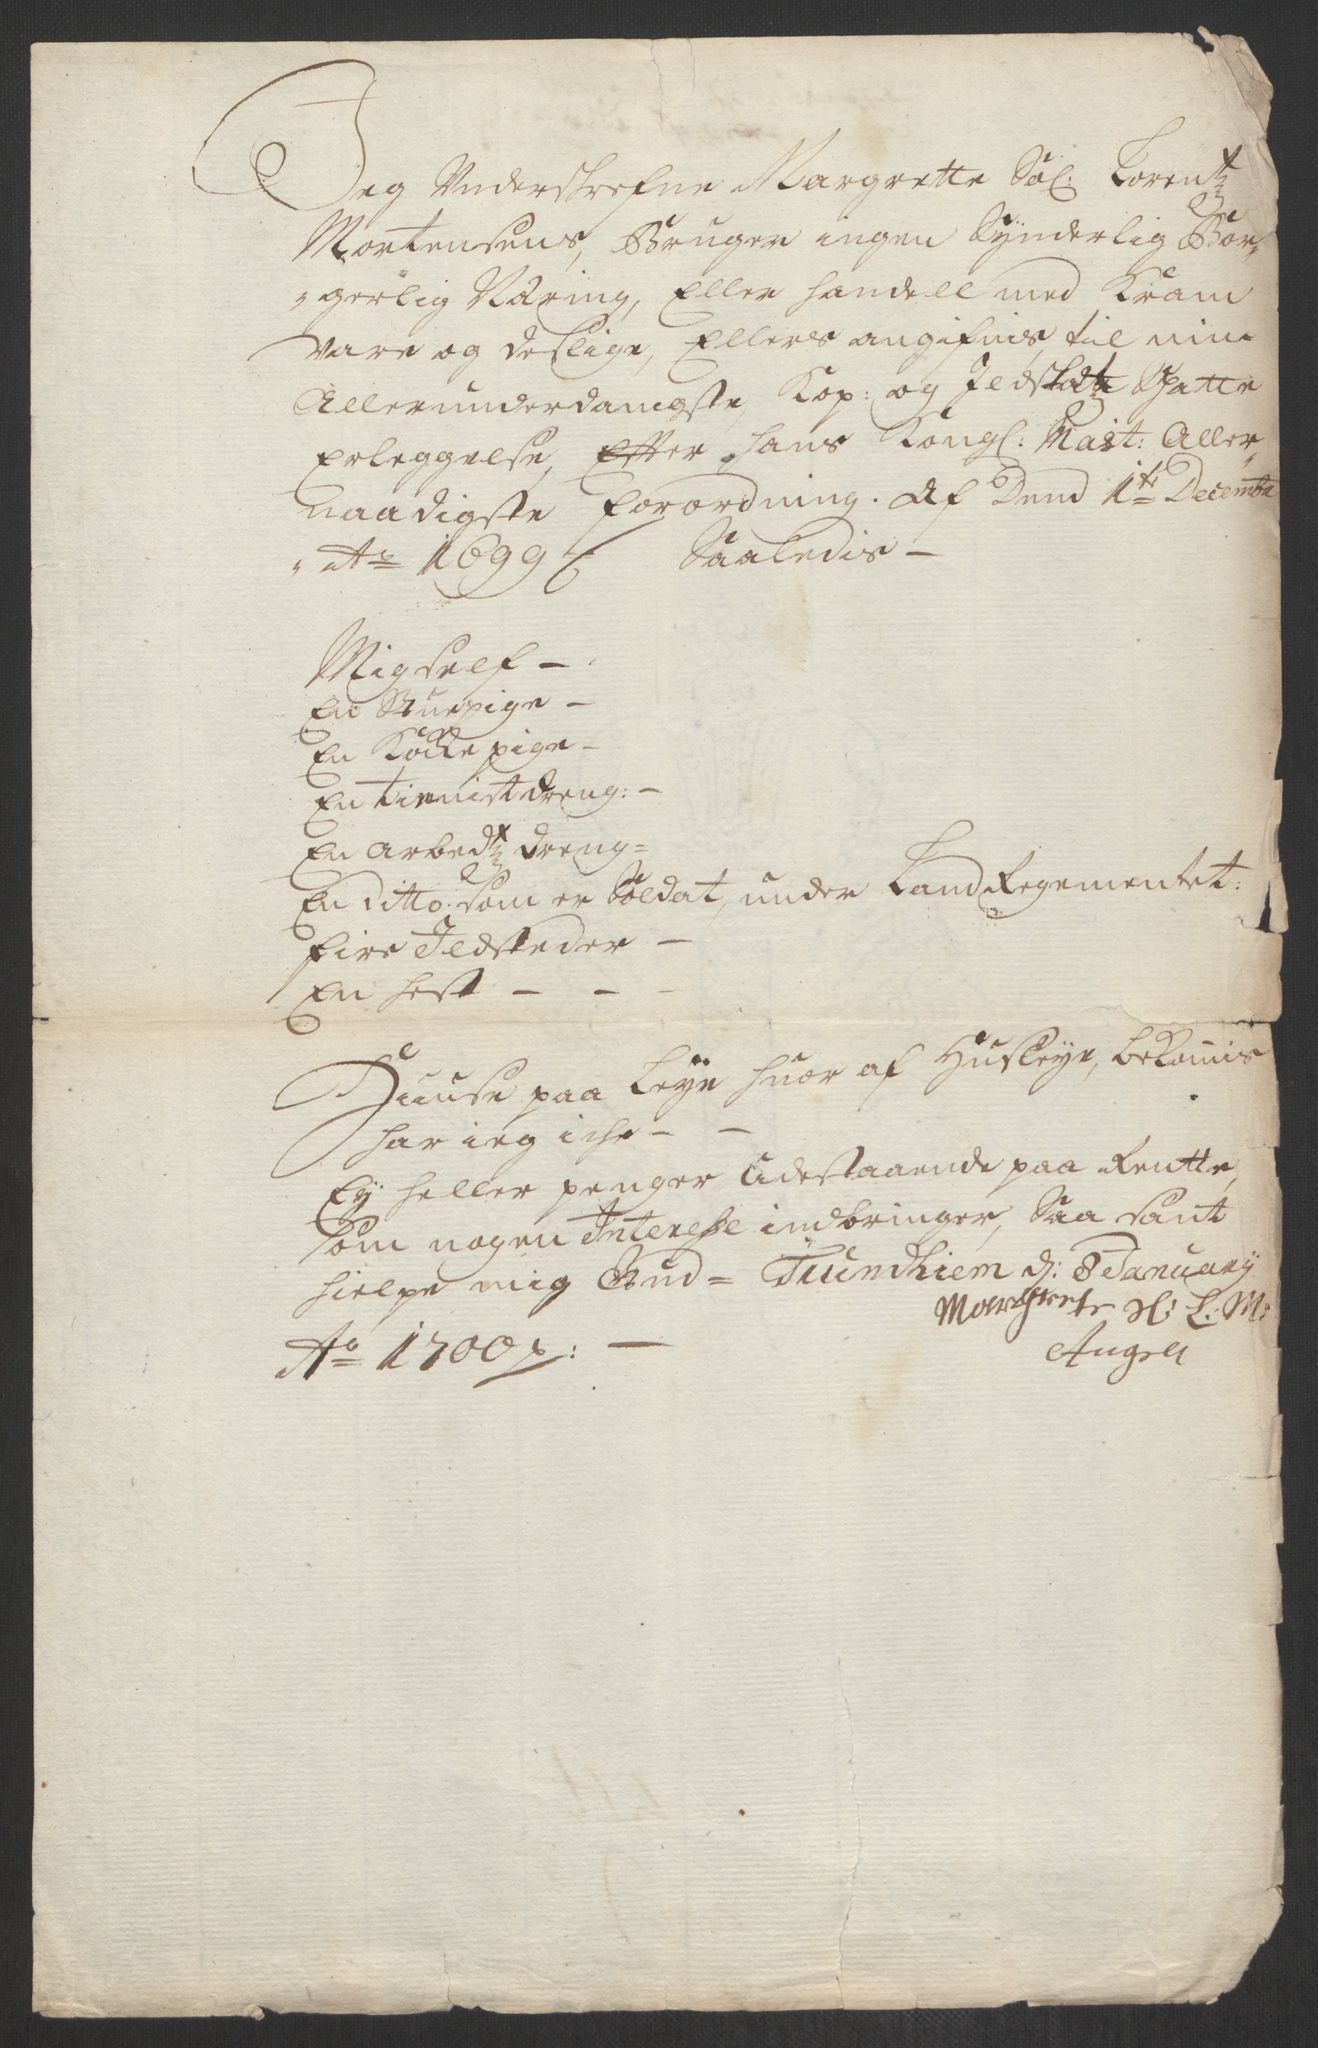 Jeg Underskrefne Margrette Sal: Lorentz
Mortensens, Bruger ingen Synderlig Bor-
-gerlig Næring, Eller handell med Kram
Vare og deslige, Ellers angifvis til min
Allerunderdanigste, Kop: og Ildstædtz Skatte
Erleggelse, Efter hans Kongl: Maist: Aller-
naadigste forordning. Af Dend 1te Decembr
Ao 1699 / Saaledis —
Migself —
En Stuepige —
En Kocke pige —
En tienist dreng: —
En arbedtz dreng =
En ditto: som er Soldat, under Land Regementet:
fire Ildsteder —
En hest — — —
Huuse paa Leye huor af Husleye, bekomis
har ieg iche — —
Ey heller penger Udestaaende paa Rentte,
som nogen Interesse indbringer, Saa sant
hielpe mig Gud = Trundhiem d: 8 January
Margrete Sl: L: M:
Ao 1700 : — Angell